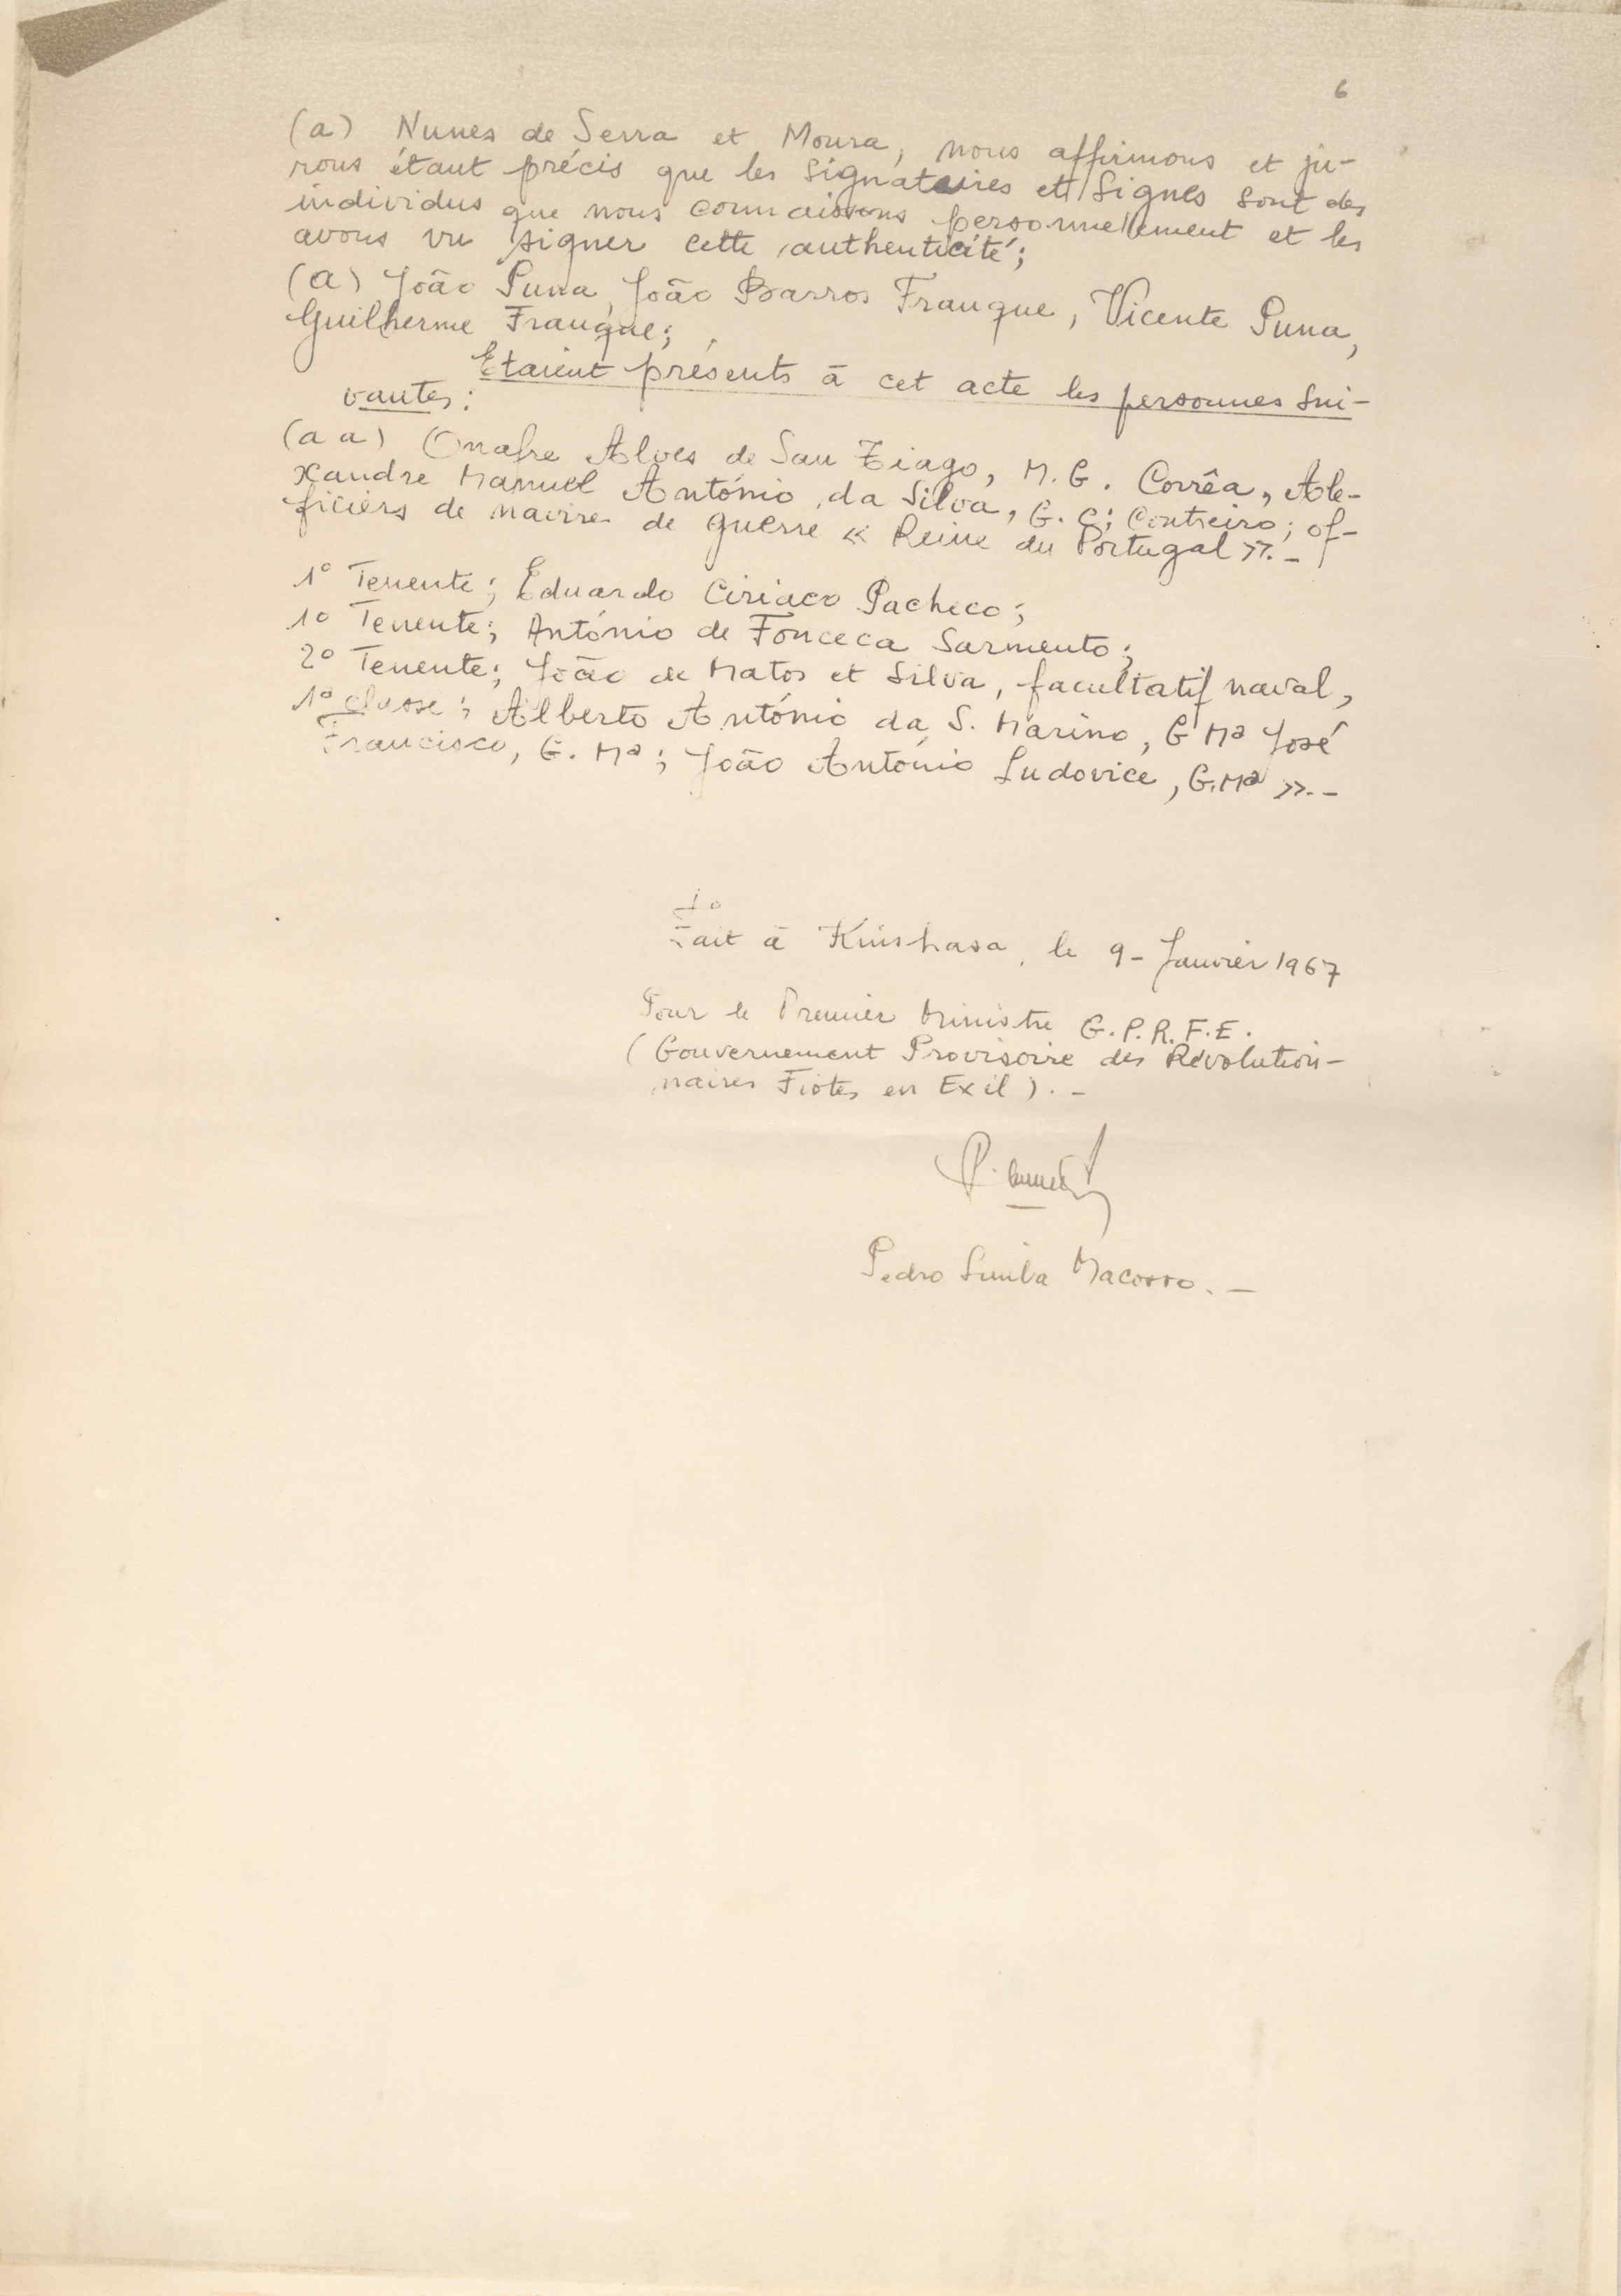 6
(a) Nunes de Serra et Moura, nous affirmons et ju-
rons étant précis que les signataires et signes sont des
individus que nous connaissons personnellement et les
avons vu signer cette authenticité;
(a) João Puna, João Barros Franque, Vicente Puna,
Guilherme Franque;
Etaient présents à cet acte les personnes sui-
vantes:
(a a) Onofre Alves de San Tiago, M. G. Corrêa, Ale-
xandre Manuel António da Silva, G. C; Contreiro; of-
ficiers de navires de guerre « Reine du Portugal ».-
1º Tenente; Eduardo Ciriaco Pacheco;
1º Tenente; António de Fonceca Sarmento;
2º Tenente; João de Matos et Silva, facultatif naval,
1º classe; Alberto António da S. Marino, G Mª José
Francisco, G. Mª; João António Ludovice, G.Mª ».-
Fait à Kinshasa, le 9- Janvier 1967
Pour le Premier Ministre G.P.R.F.E.
(Gouvernement Provisoire des Révolution-
naires Fiotes en Exil).-
Pedro Simba Macosso.-